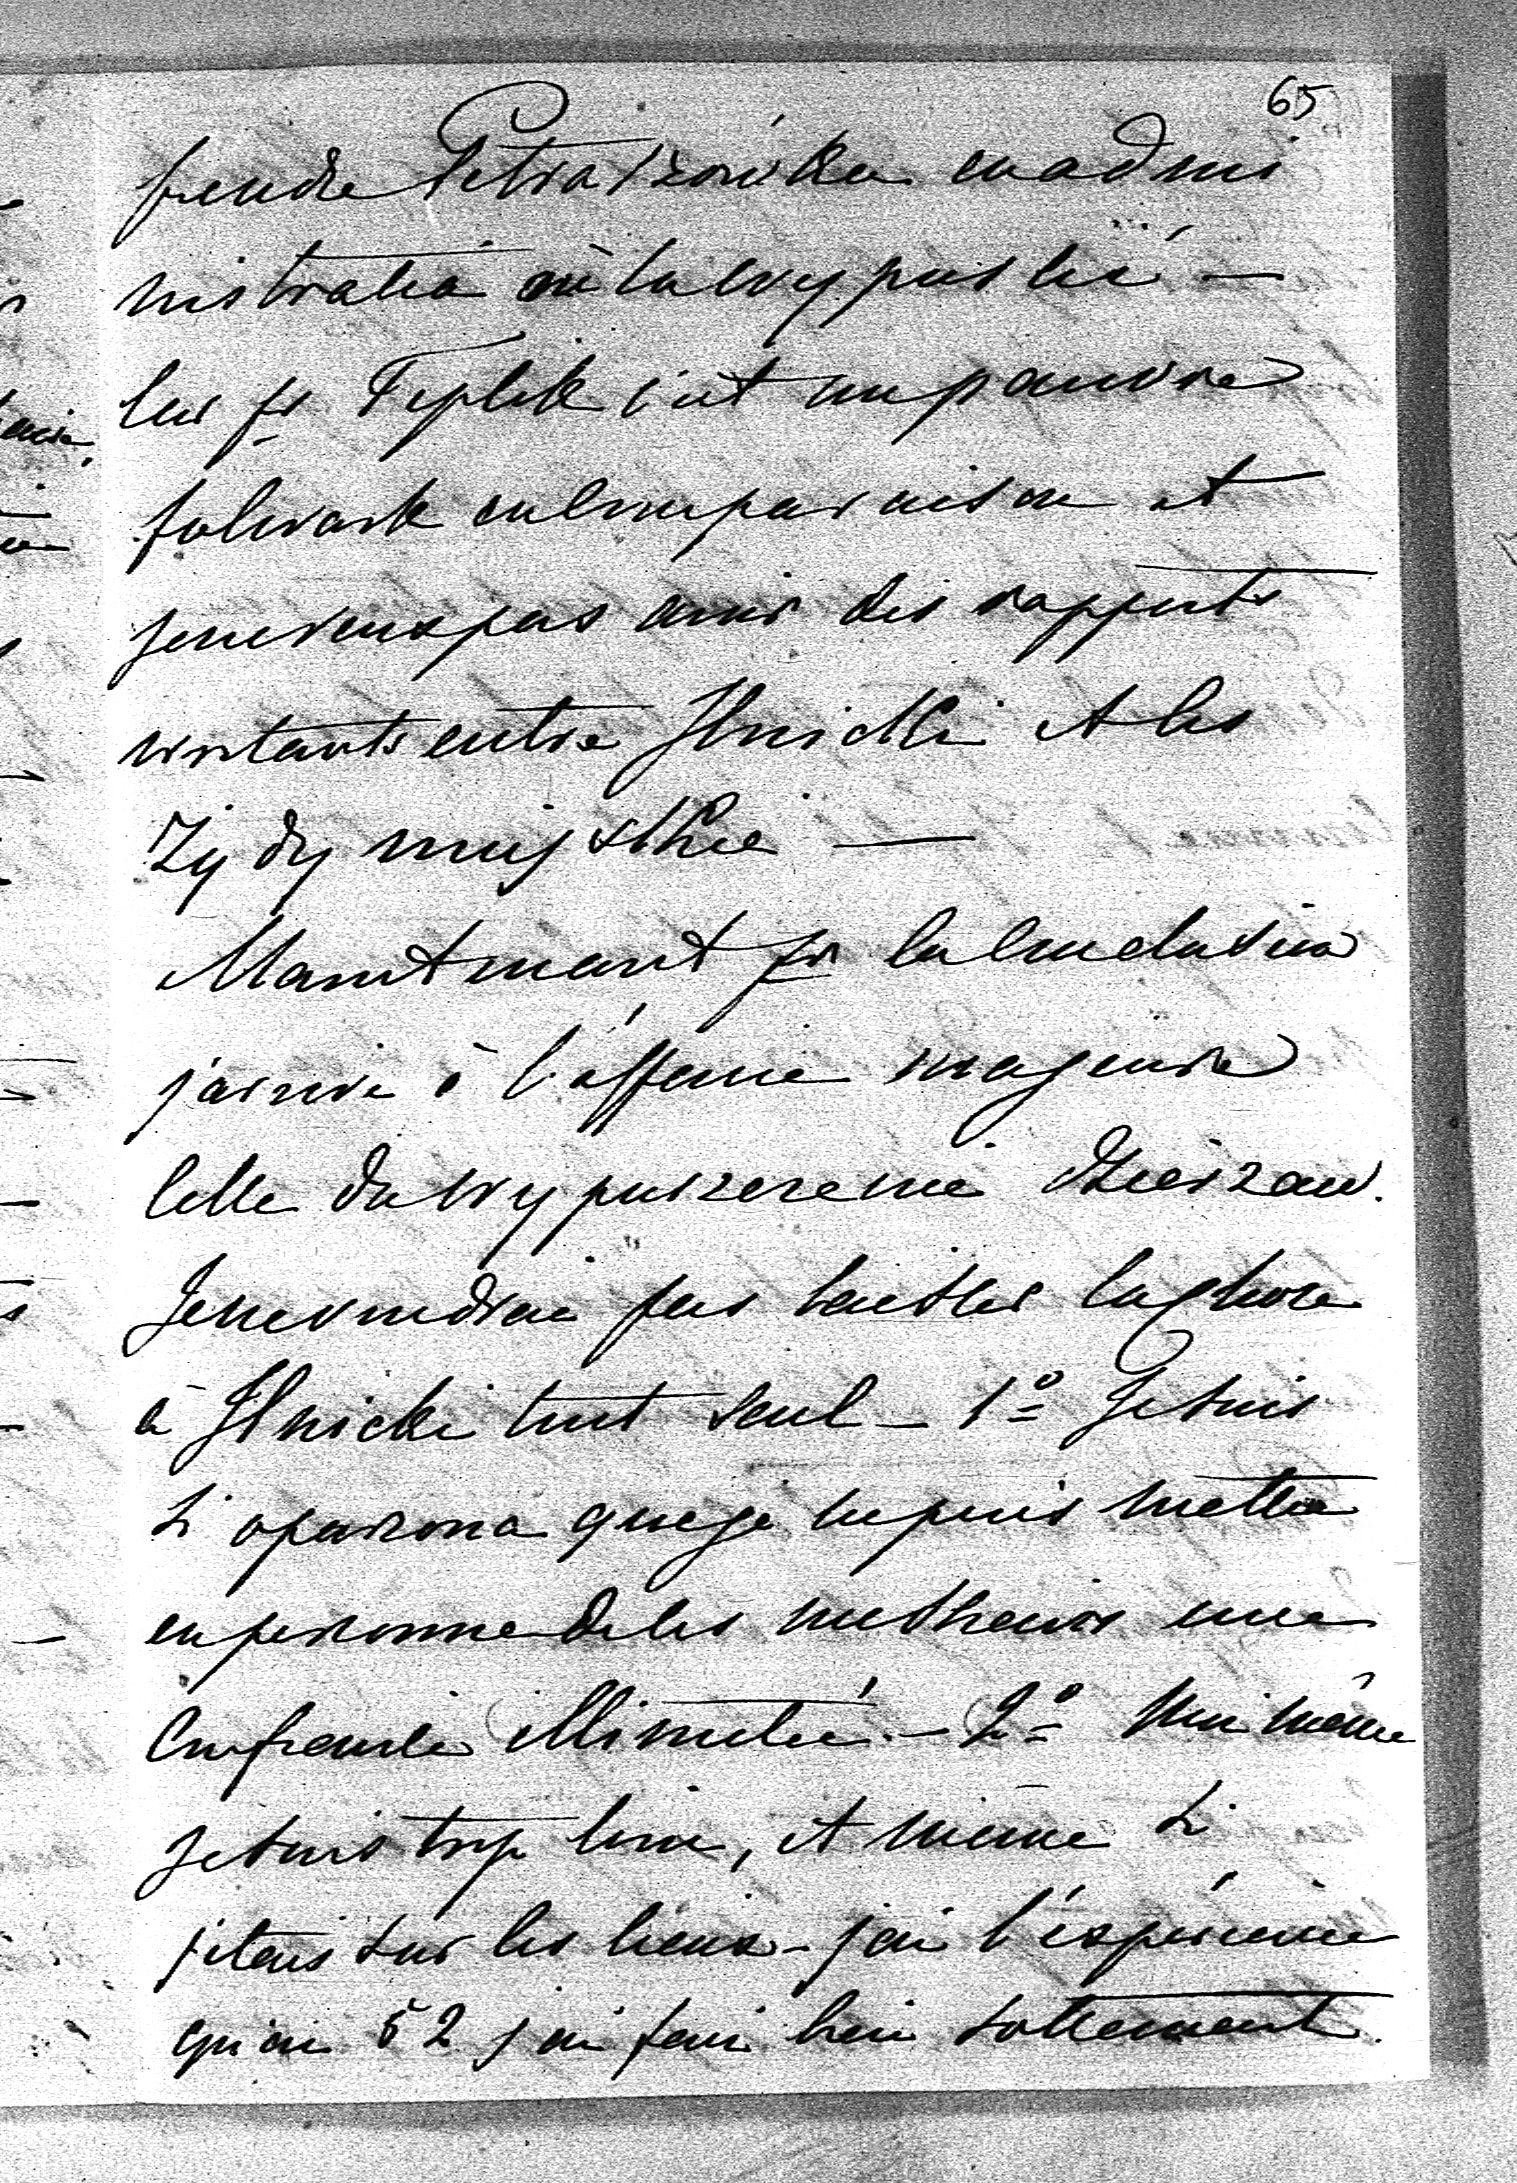 65
prendre Pietraszówka en admi
nistratia ou la wypuscić —
Car pr Teplik c'est un pauvre
folwark en comparaison et
je ne veux pas avoir des rapports
irritants entre Ilnicki et les
Żydy miejskie —
Maintenant pr la conclusion
j'arrive à l'affaire majeure
celle du wypuszczenie dzierzaw.
Je ne voudrai pas laisser la chose
à Ilnicki tout seul — 1º Je suis
si oparzona que je ne puis mettre
en personne de ces messieurs une
confiance illimitée. — 2º Moi même
je suis trop loin, et même si
j'étais sur les lieux — j'ai l'expérience
qu'en 52 j'ai fait bien sottement.